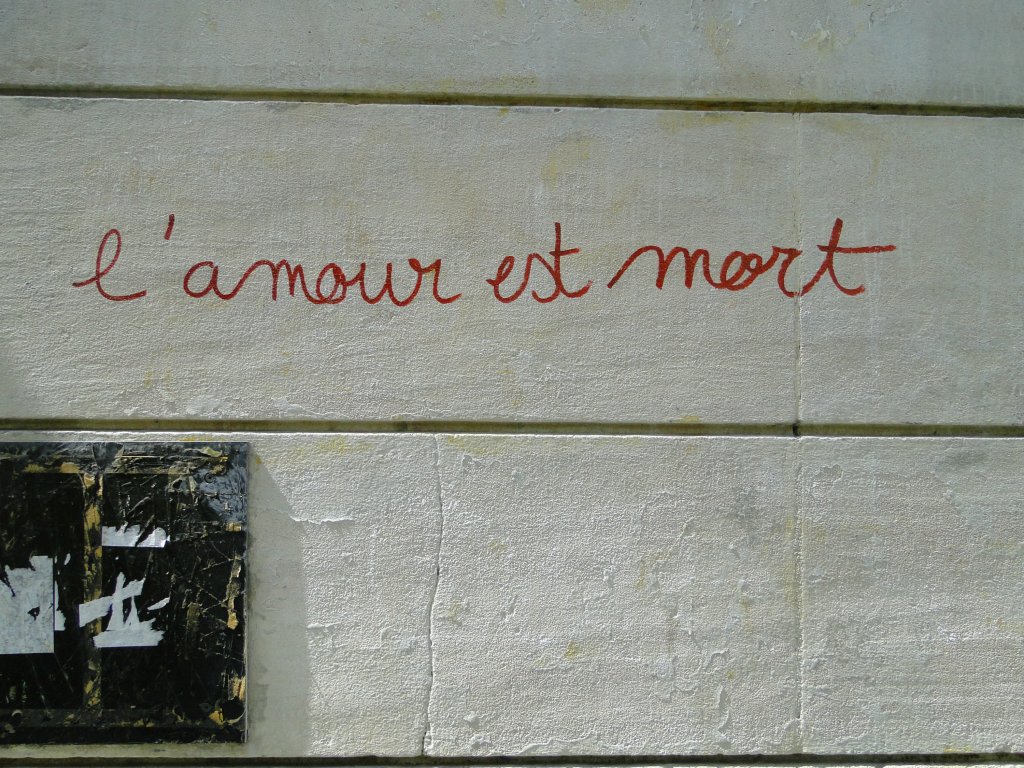 l'amour est mort